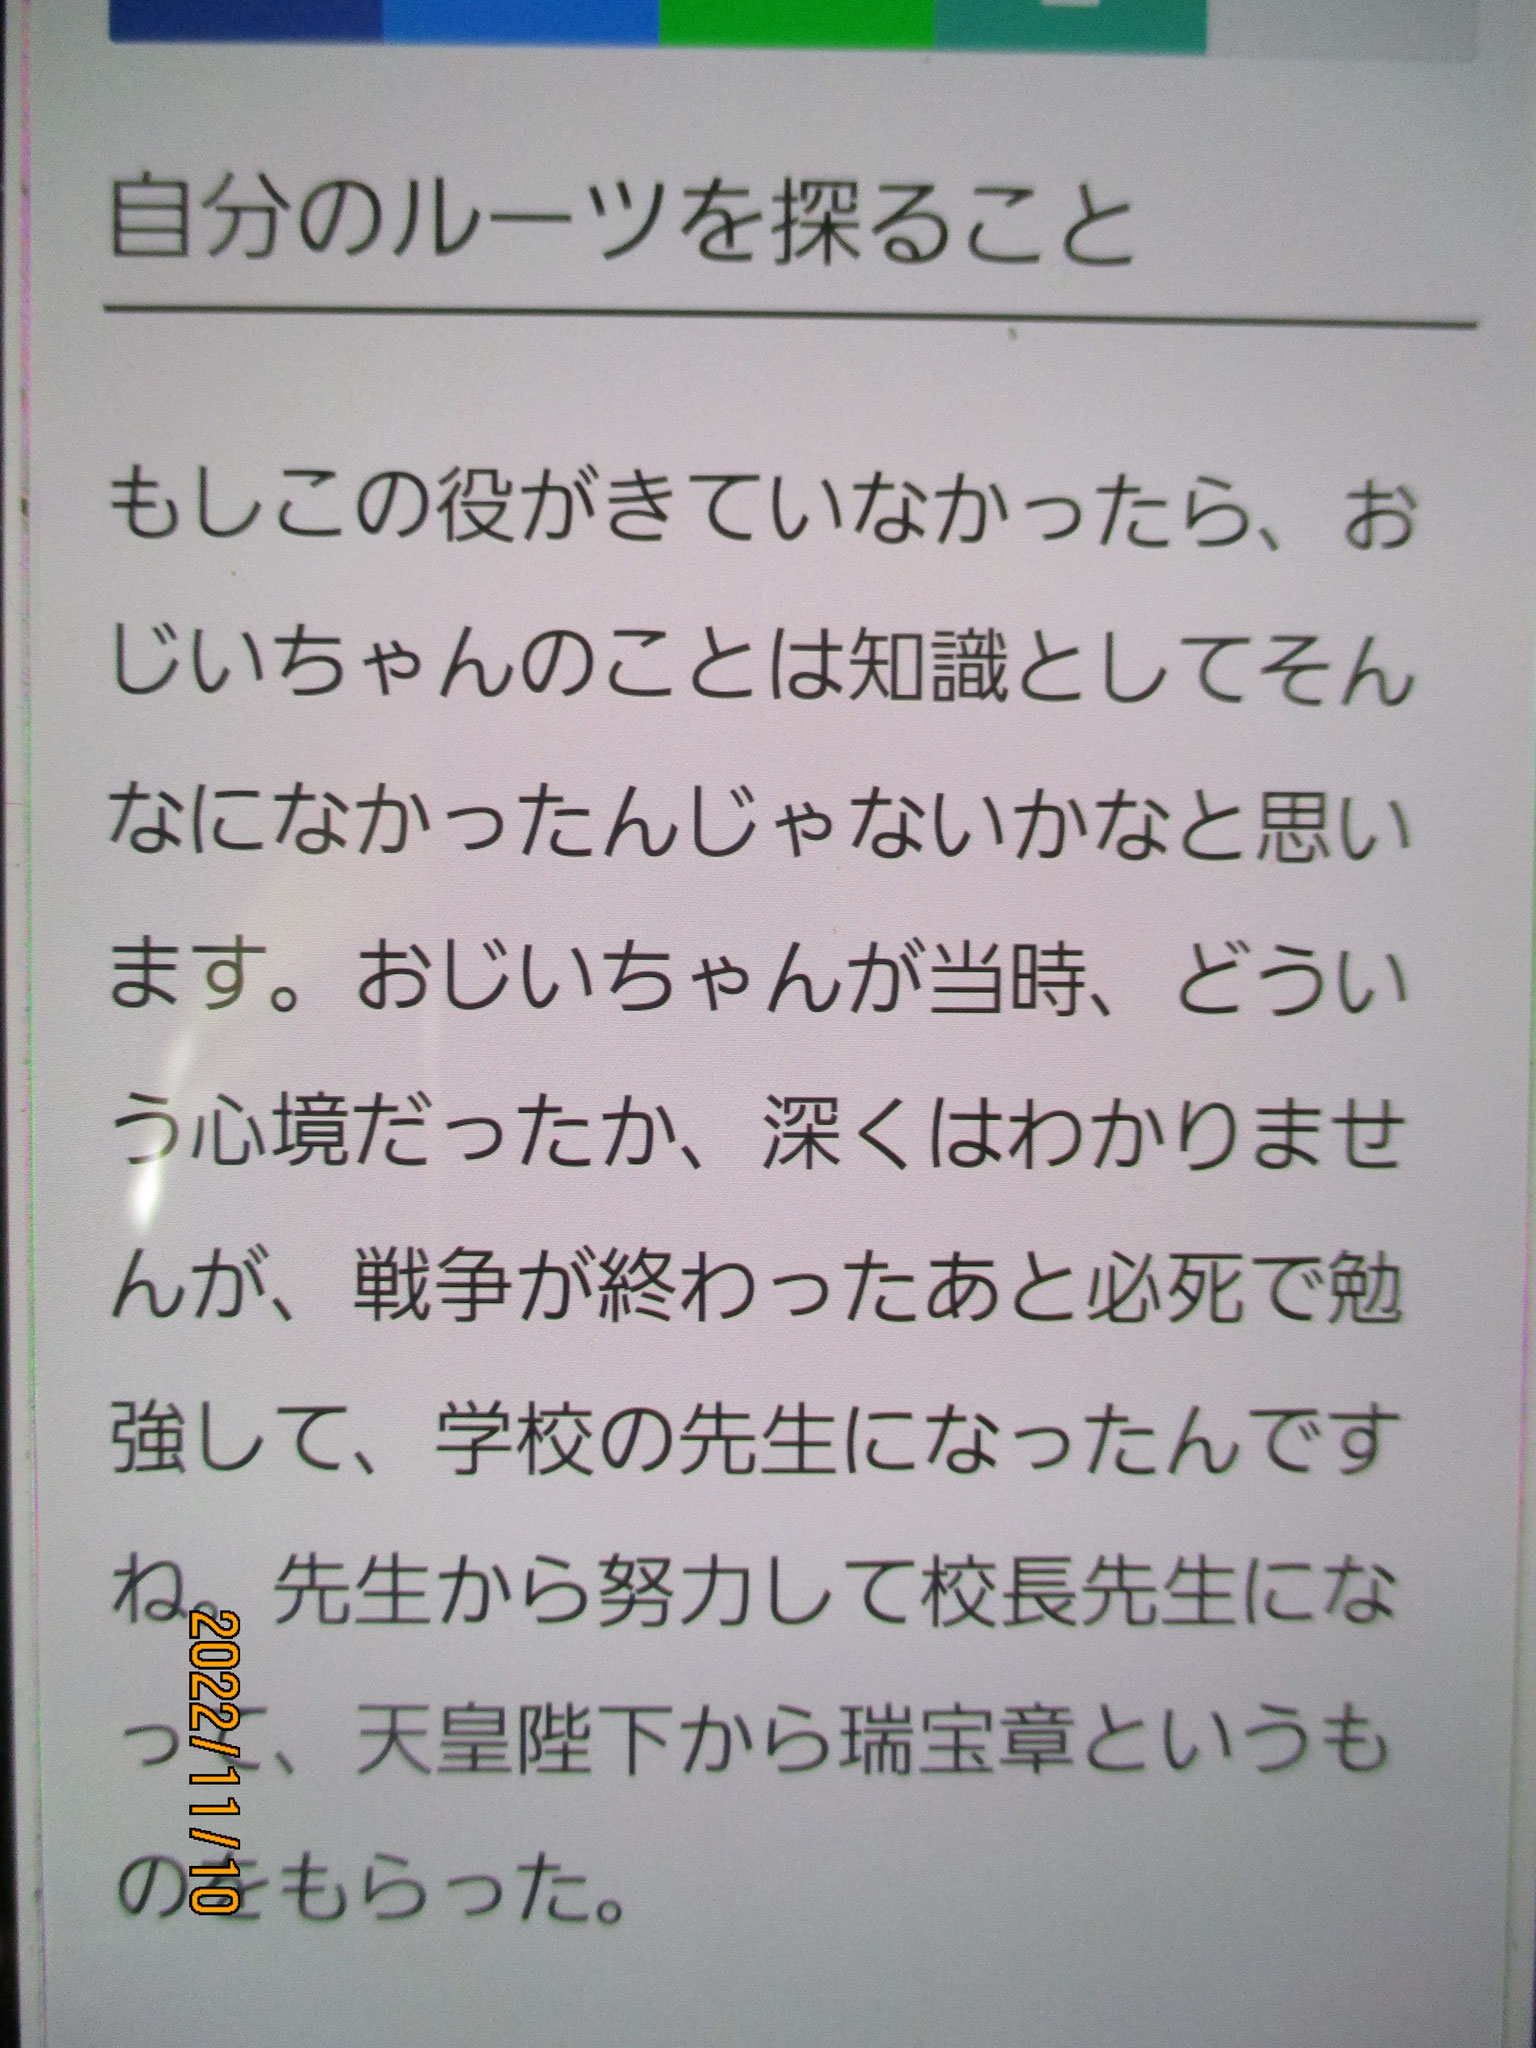 自分のルーツを探ること
もしこの役がきていなかったら、お
じいちゃんのことは知識としてそん
なになかったんじゃないかなと思い
ます。おじいちゃんが当時、どうい
う心境だったか、深くはわかりませ
んが、戦争が終わったあと必死で勉
強して、学校の先生になったんです
ね。先生から努力して校長先生にな
って、天皇陛下から瑞宝章というも
のをもらった。
2022/11/10